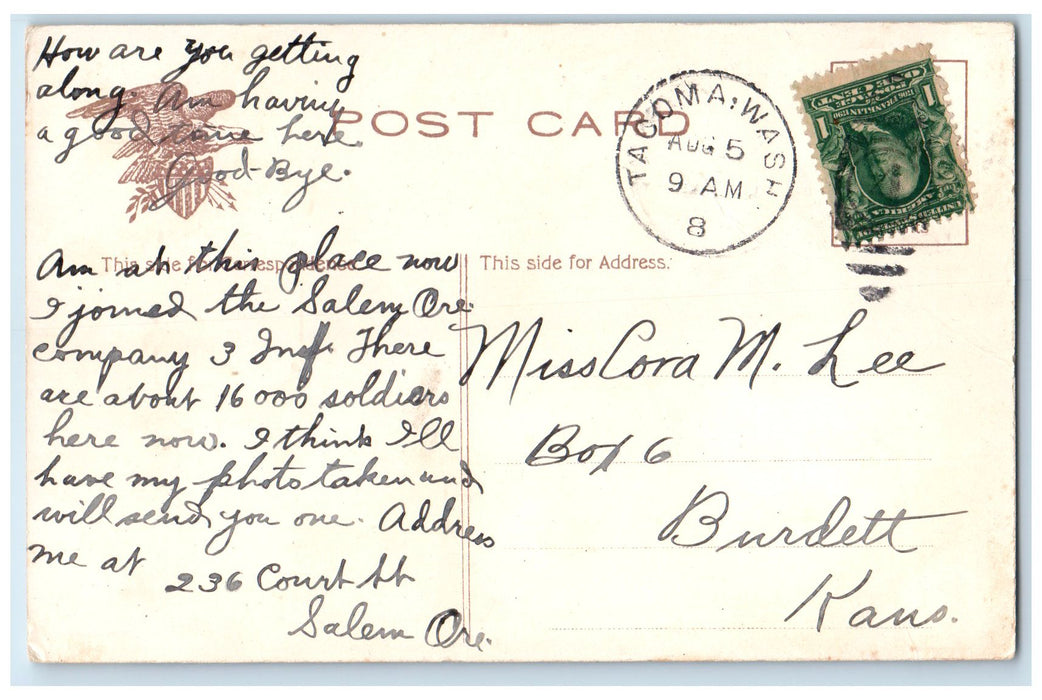 How are you getting
along. Am having
a good time here.
Good-Bye.
POST CARD
TACOMA, WASH
AUG 5
9 AM
8
ONE CENT
POSTAGE
1706 FRANKLIN 1790
1 1
UNITED STATES OF
AMERICA
This side for Correspondence
This side for Address.
Am at this place now
I joined the Salem Ore.
company 3 Inf. There
are about 16000 soldiers
here now. I think I'll
have my photo taken and
will send you one. Address
me at
236 Court St
Salem Ore.
Miss Cora M. Lee
Box 6
Burdett
Kans.